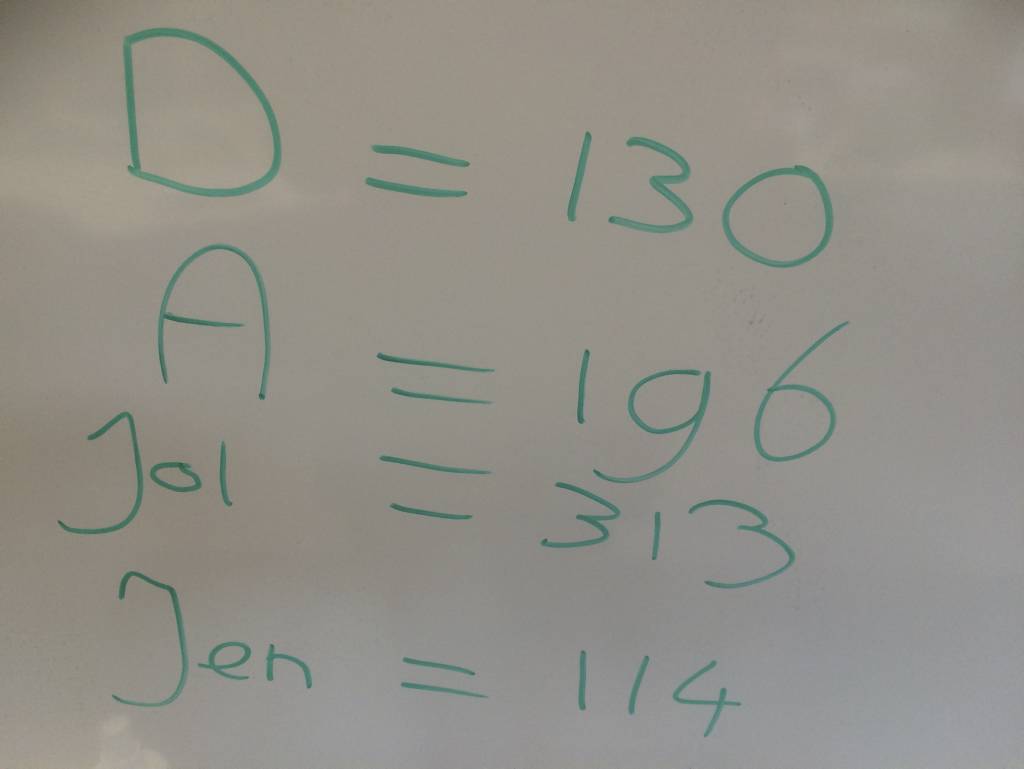 D = 130
A = 196
Jol = 313
Jen = 114